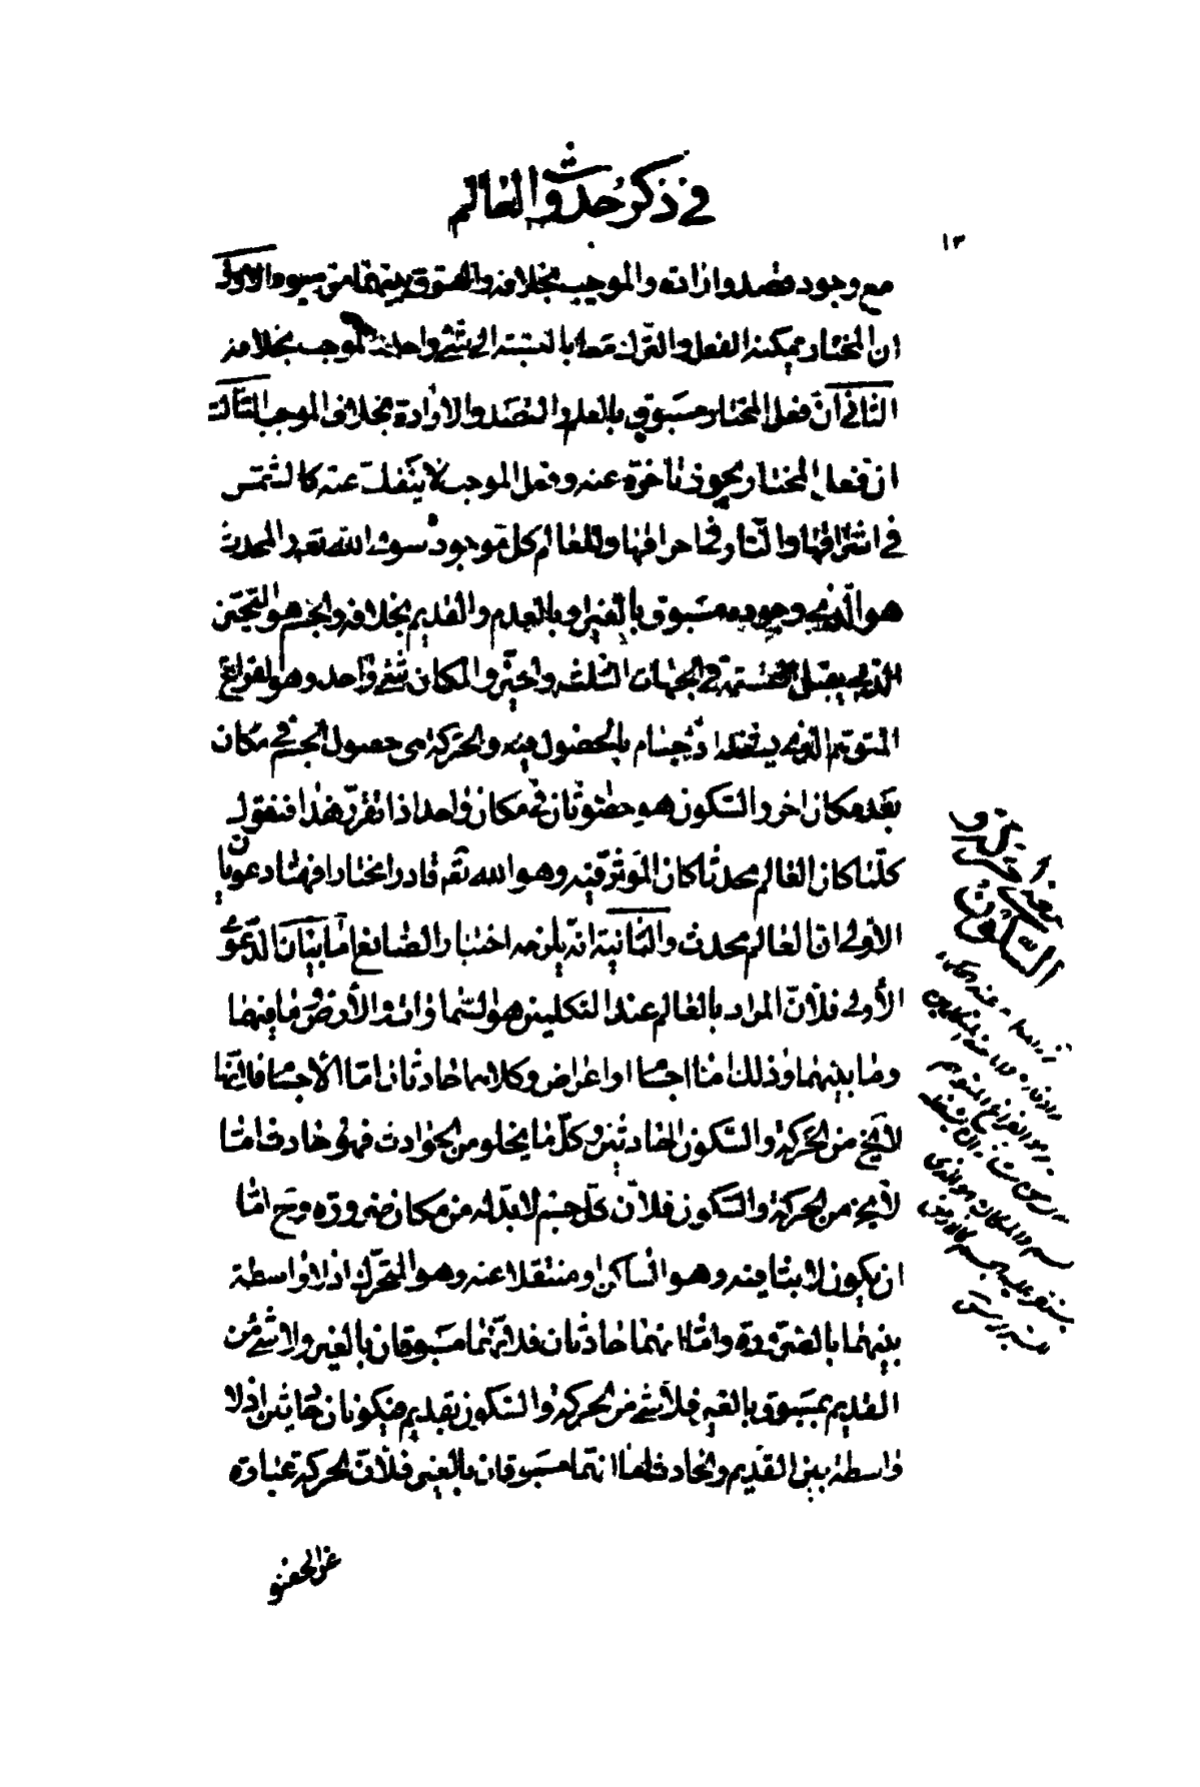 في ذكر حدوث العالم
١٣
مع وجود قصد وارادة والموجب بخلافه والفرق بينهما من وجوه الاول
ان المختار يمكنه الفعل والترك معا بالنسبة الى شئ واحد والموجب بخلافه
الثانى ان فعل المختار مسبوق بالعلم والقصد والارادة بخلاف الموجب الثالث
ان فعل المختار يجوز تأخره عنه وفعل الموجب لا ينفك عنه كالشمس
في اشراقها والنار في احراقها والعالم كل موجود سوى الله تعه والمحدث
هو الذى وجوده مسبوق بالغير او بالعدم والقديم بخلافه والجسم هو المتحيز
الذى يقبل القسمة في الجهات الثلث والحيز والمكان شئ واحد وهو الفراغ
المتوهم الذى يشغله الاجسام بالحصول فيه والحركة هى حصول الجسم في مكان
بعد مكان اخر والسكون هو حصول ثان في مكان واحد اذا تقرر هذا فنقول
كلما كان العالم محدثا كان المؤثر فيه وهو الله تعه قادرا مختارا فهنا دعويان
الاولى ان العالم محدث والثانية انه يلزمه اختيار الصانع اما بيان الدعوى
الأولى فلأن المراد بالعالم عند المتكلمين هو السموات والأرض وما فيهما
وما بينهما وذلك اما اجسام او اعراض وكلاهما حادثان اما الاجسام فلانها
لا يخ من الحركة والسكون الحادثين وكل ما يخلو من الحوادث فهو حادث اما
لا يخ من الحركة والسكون فلأن كل جسم لا بد له من مكان ضرورة وح اما
ان يكون لابثا فيه وهو الساكن او منتقلا عنه وهو المتحرك اذ لا واسطة
بينهما بالضرورة واما انهما حادثان فلانهما مسبوقان بالغير ولا شئ من
القديم بمسبوق بالغير فلا شئ من الحركة والسكون بقديم فيكونان حادثين اذ لا
واسطة بين القديم والحادث اما انهما مسبوقان بالغير فلأن الحركة عبارة
حركة و
السكون